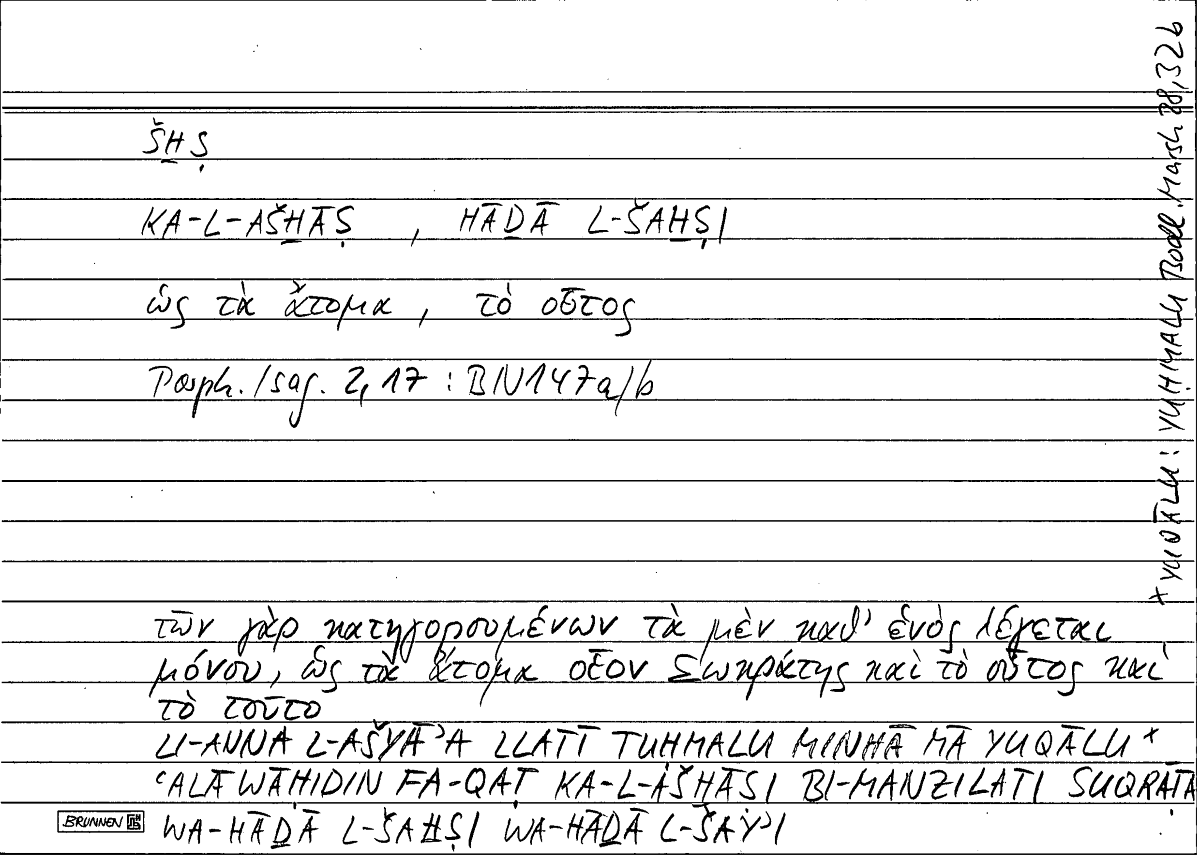 ŠḪṢ
KA-L-AŠḪĀṢ , HĀḎĀ L-ŠAḪṢI
ὡς τὰ ἄτομα , τὸ οὗτος
Porph. Isag. 2,17 : BN147a/b
τῶν γὰρ κατηγορουμένων τὰ μὲν καθ' ἑνὸς λέγεται
μόνου, ὡς τὰ ἄτομα οἷον Σωκράτης καὶ τὸ οὗτος καὶ
τὸ τοῦτο
LI-ANNA L-AŠYĀʾA LLATĪ TUḤMALU MINHĀ MĀ YUQĀLU ×
ʿALĀ WĀḤIDIN FA-QAṬ KA-L-AŠḪĀṢI BI-MANZILATI SUQRĀṬA
WA-HĀḎĀ L-ŠAḪṢI WA-HĀḎĀ L-ŠAYʾI
BRUNNEN
× YUQĀLU : YUḤMALU Bodl. Marsh 28,32b